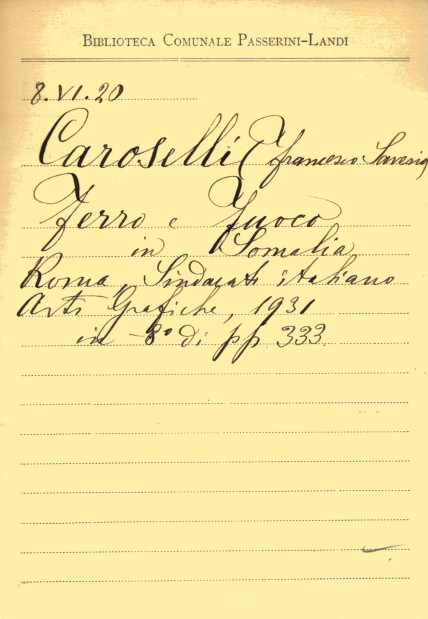 BIBLIOTECA COMUNALE PASSERINI-LANDI
8.VI.20
Caroselli (Francesco Saverio
Ferro e Fuoco
in Somalia
Roma, Sindacato italiano
Arti Grafiche, 1931
in 8° di pp 333.